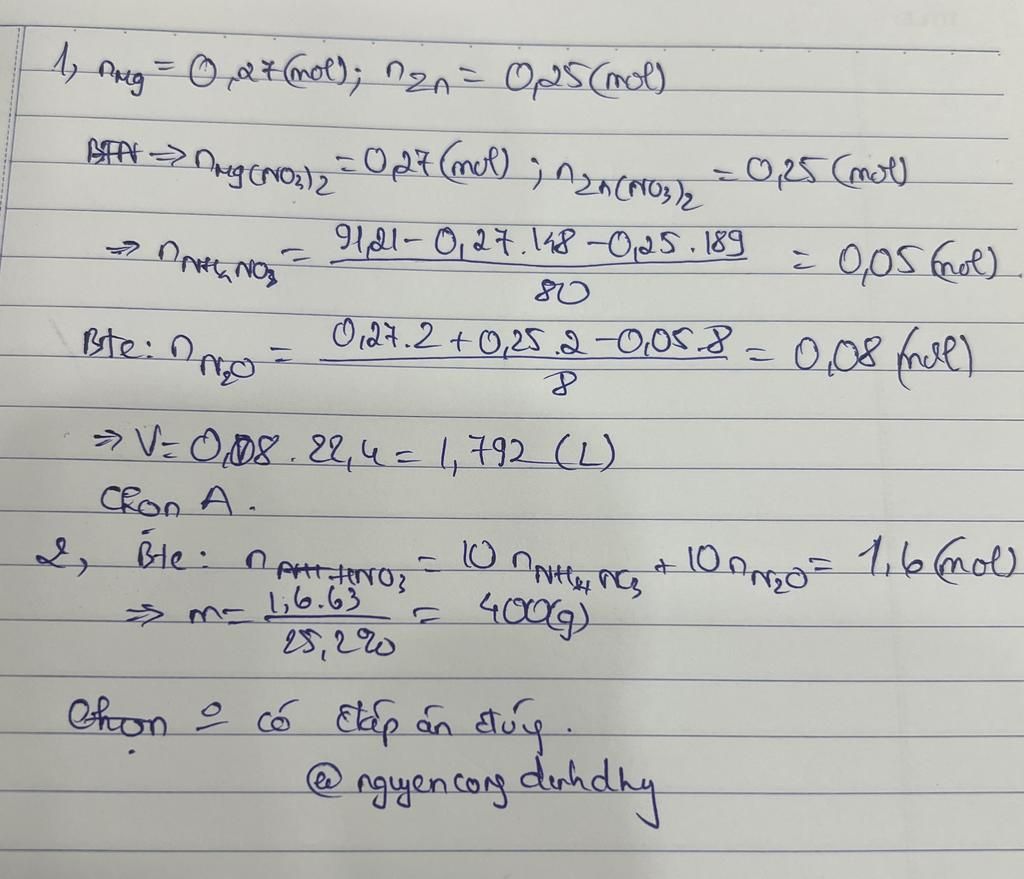 1, nMg = 0,27 (mol); nZn = 0,25 (mol)
BTNT ⇒ nMg(NO3)2 = 0,27 (mol); nZn(NO3)2 = 0,25 (mol)
⇒ nNH4NO3 = (91,21 - 0,27.148 - 0,25.189) / 80 = 0,05 (mol).
Bte: nN2O = (0,27.2 + 0,25.2 - 0,05.8) / 8 = 0,08 (mol)
⇒ V = 0,08 . 22,4 = 1,792 (L)
Chọn A.
2, Bte: nHNO3 = 10 nNH4NO3 + 10 nN2O = 1,6 (mol)
⇒ m = 1,6.63 / 25,2% = 400(g)
Chọn o có đáp án đúng.
@nguyencong